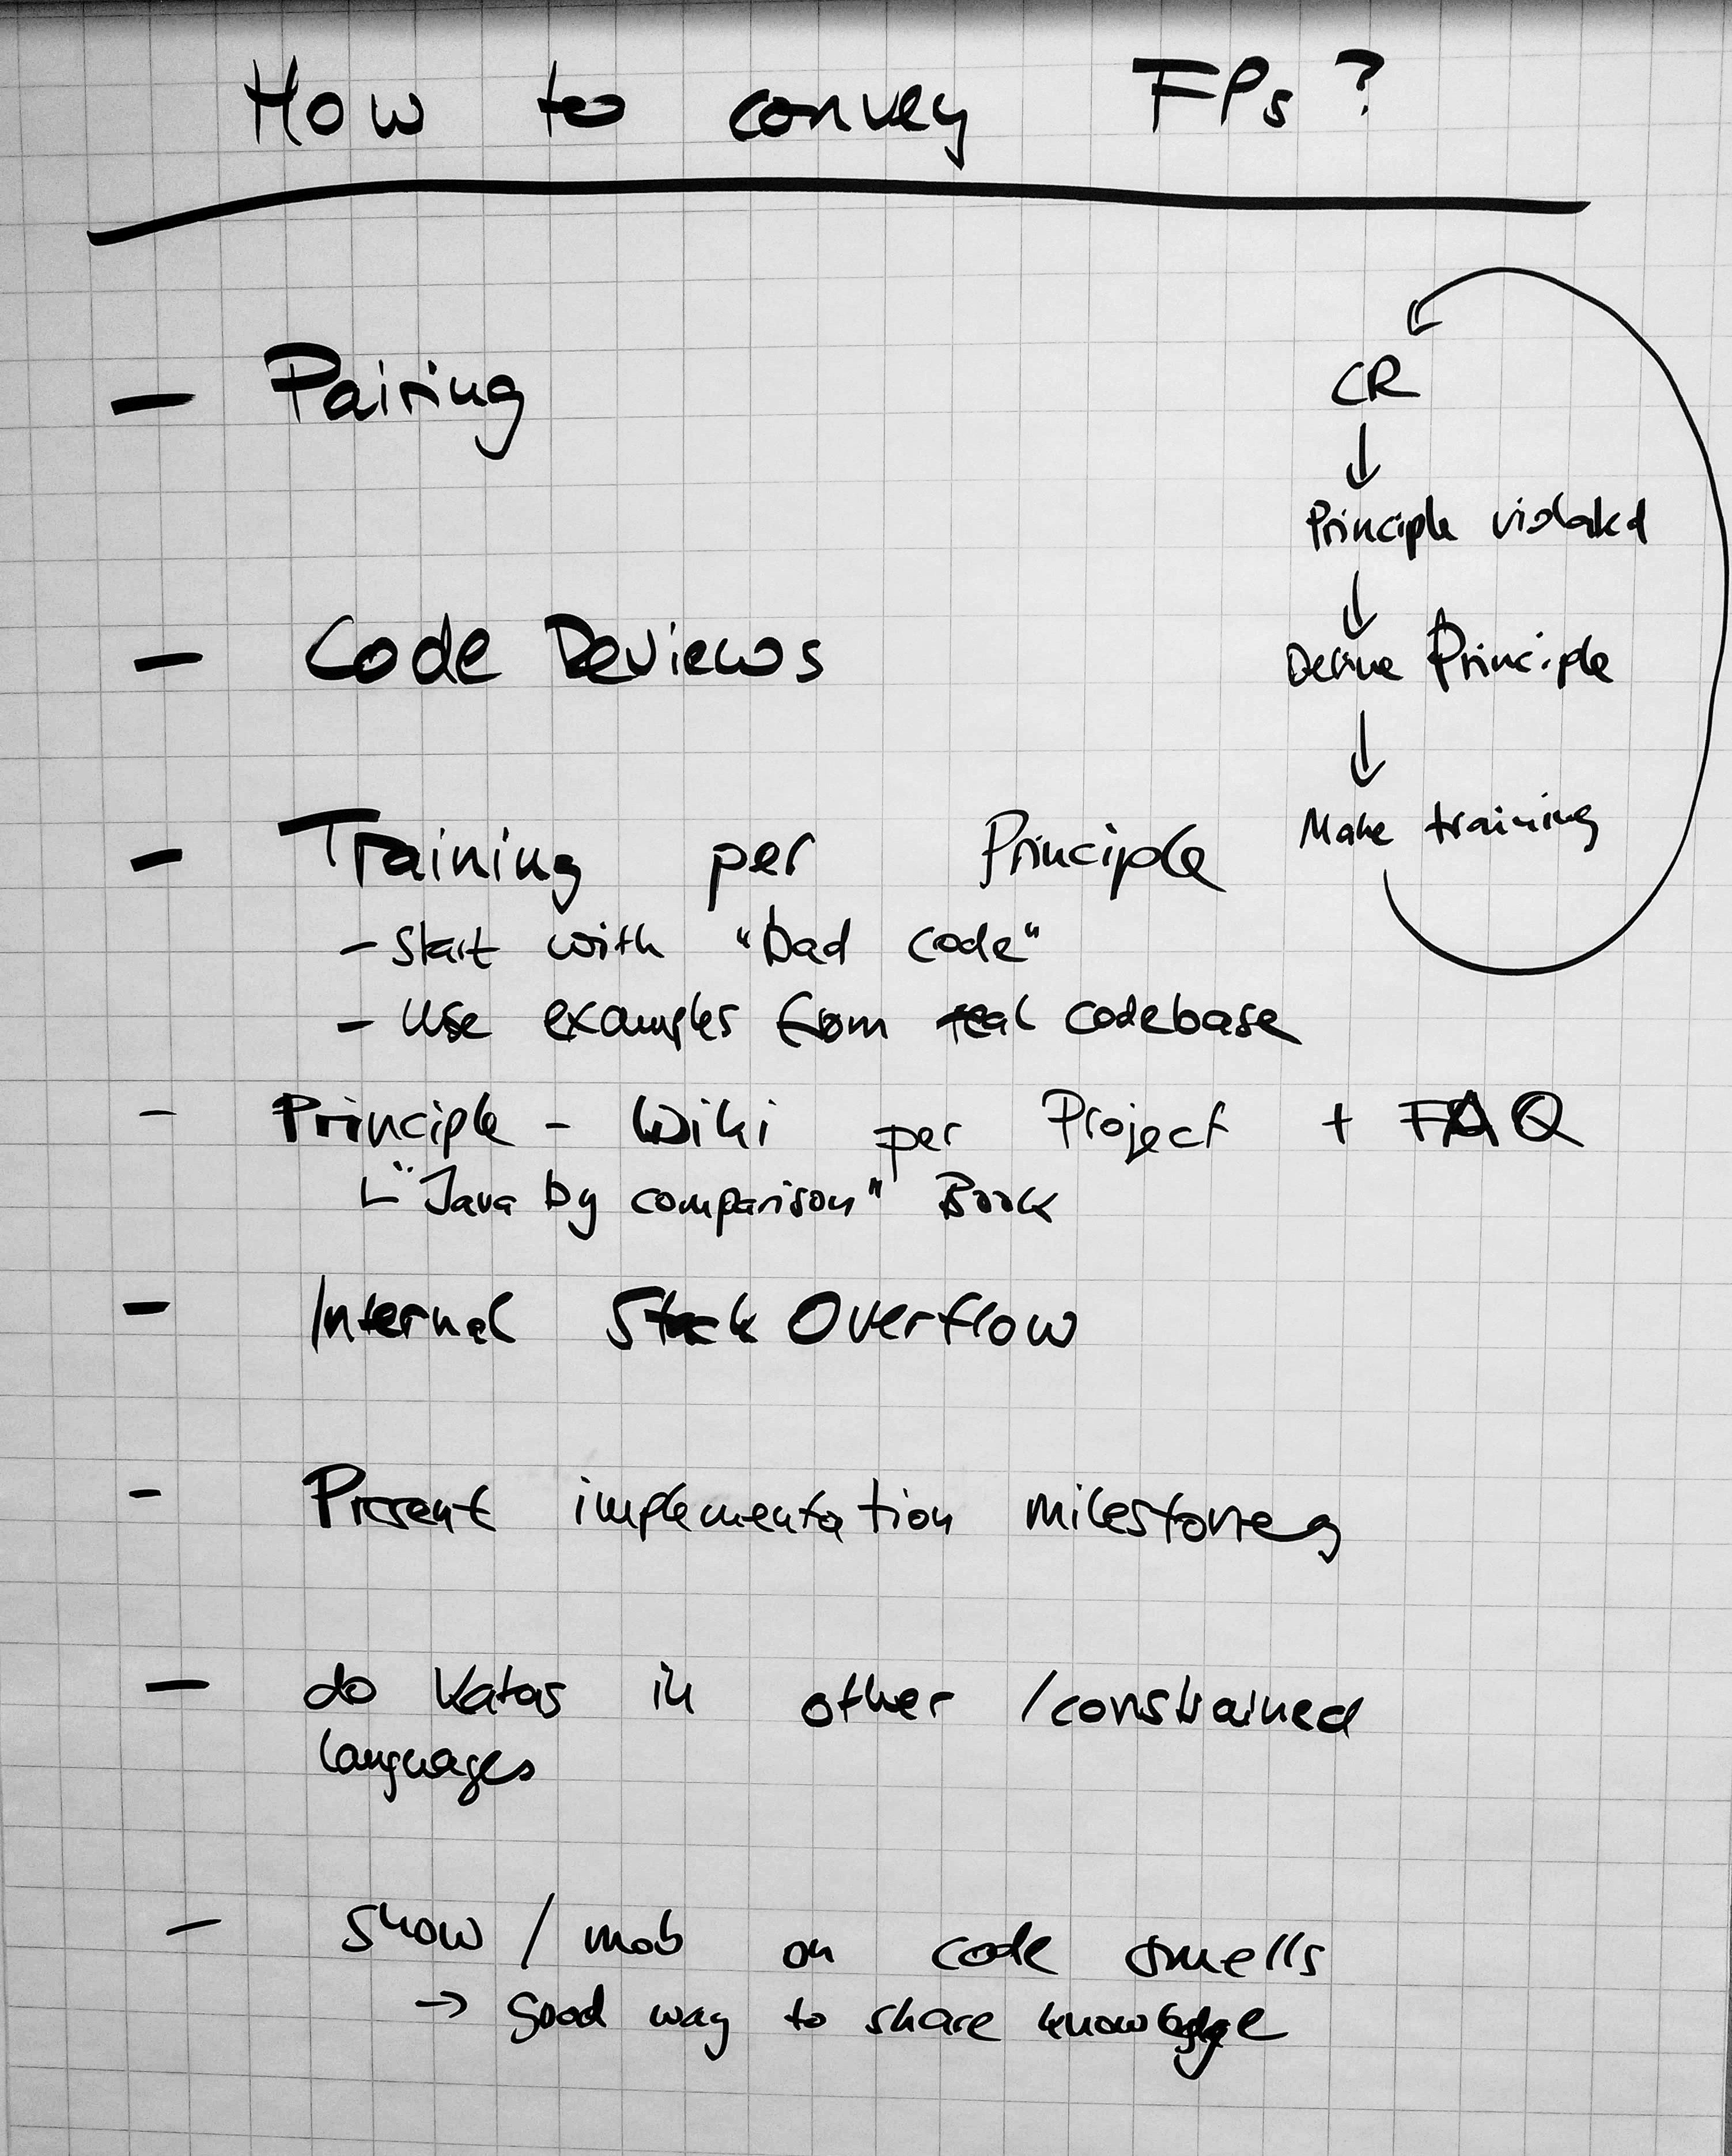 How to convey FPs?
- Pairing
- Code Reviews
- Training per Principle
- Start with "bad code"
- Use examples from real codebase
- Principle - Wiki per Project + FAQ
"Java by comparison" Book
- Internal Stack Overflow
- Present implementation milestones
- do Katas in other / constrained
languages
- show / mob on code smells
→ Good way to share knowledge
CR
↓
Principle violated
↓
Define Principle
↓
Make training